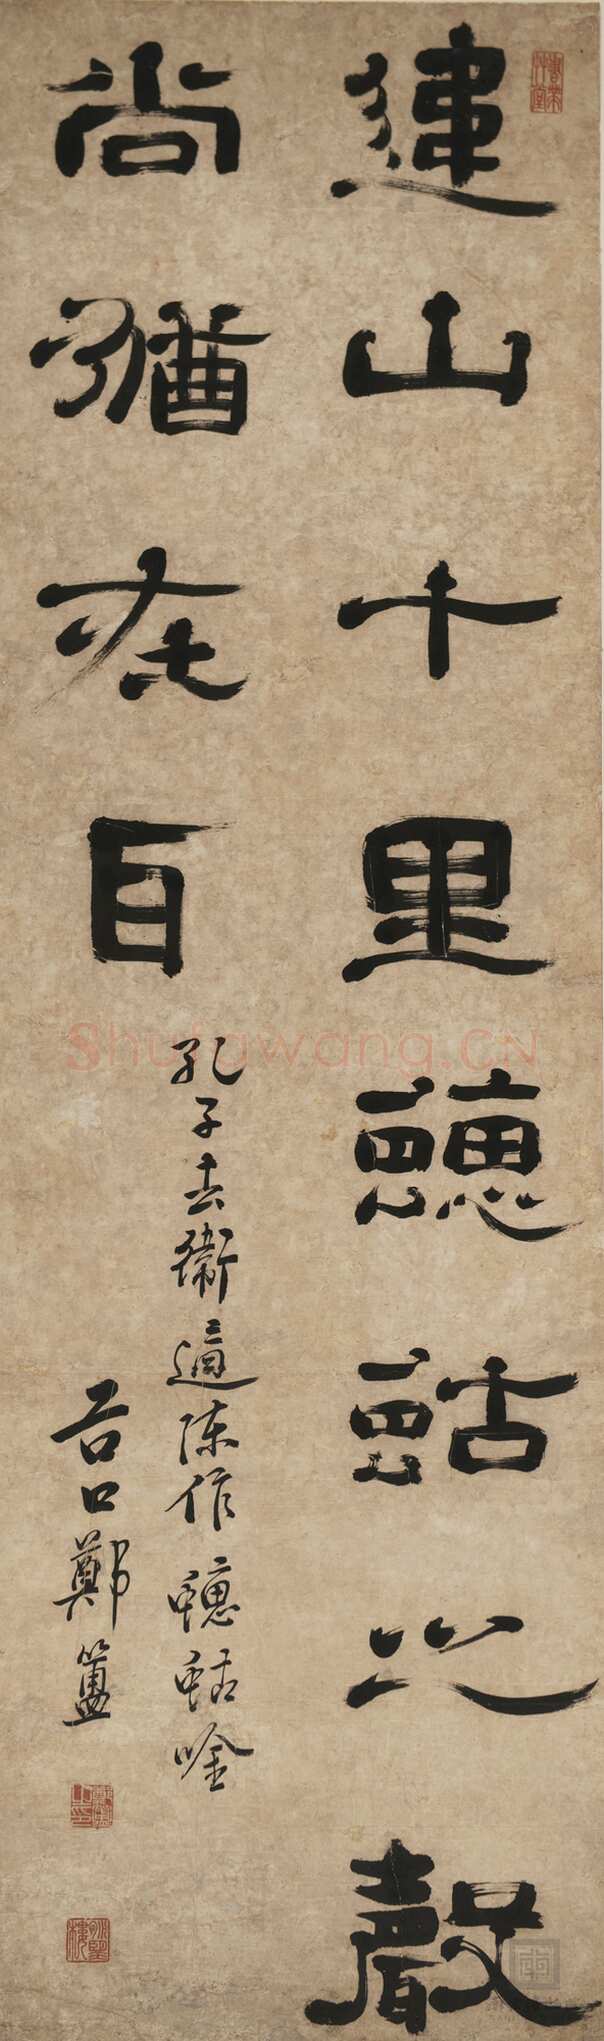 違山十里蟪蛄之聲
尚猶在耳
孔子去衛適陳作蟪蛄唫
谷口鄭簠
Shufawang.CN